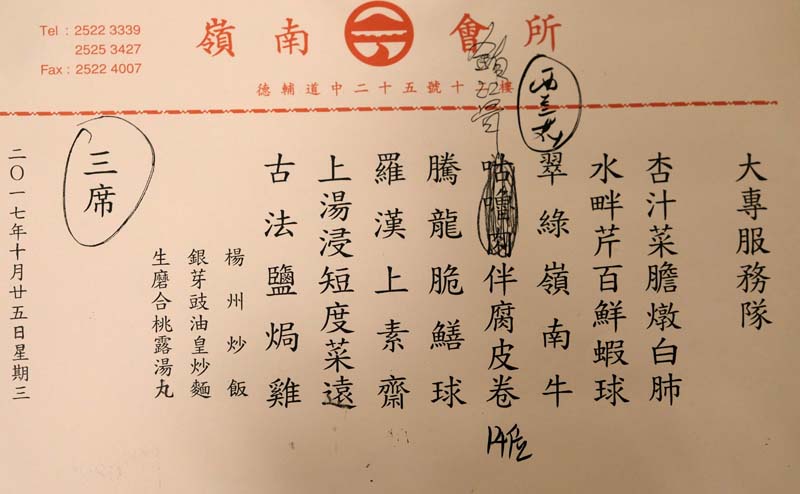 Tel : 2522 3339
2525 3427
Fax : 2522 4007
嶺南會所
德輔道中二十五號十二樓
大專服務隊
杏汁菜膽燉白肺
水畔芹百鮮蝦球
西兰花
翠綠嶺南牛
咕嚕肉伴腐皮卷
14位
騰龍脆鱔球
羅漢上素齋
上湯浸短度菜遠
古法鹽焗雞
楊州炒飯
銀芽豉油皇炒麵
生磨合桃露湯丸
三席
二〇一七年十月廿五日星期三